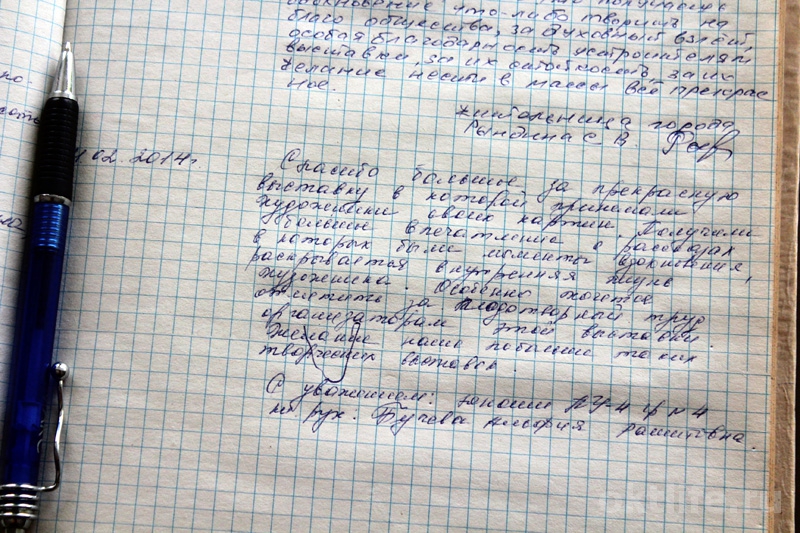 что-либо творить на
благо общества, за духовный взлёт,
особая благодарность устроителям
выставки, за их стойкость, за их
желание нести в массы всё прекрас
ное.
жительница города
Рындина С. В.
02. 2014г.
Спасибо большое за прекрасную
выставку в которой принимали
художники своих картин. Получили
большие впечатление о рассказах
в которых были моменты вдохновения,
раскрывается внутренняя жизнь
художника. Особенно хочется
отметить за плодотворный труд
организаторам этой выставки.
Желание наше побольше таких
творческих выставок.
С уважением: юноши ПУ-4 гр №4
и рук. Альфия Рашитовна.
oktlife.ru